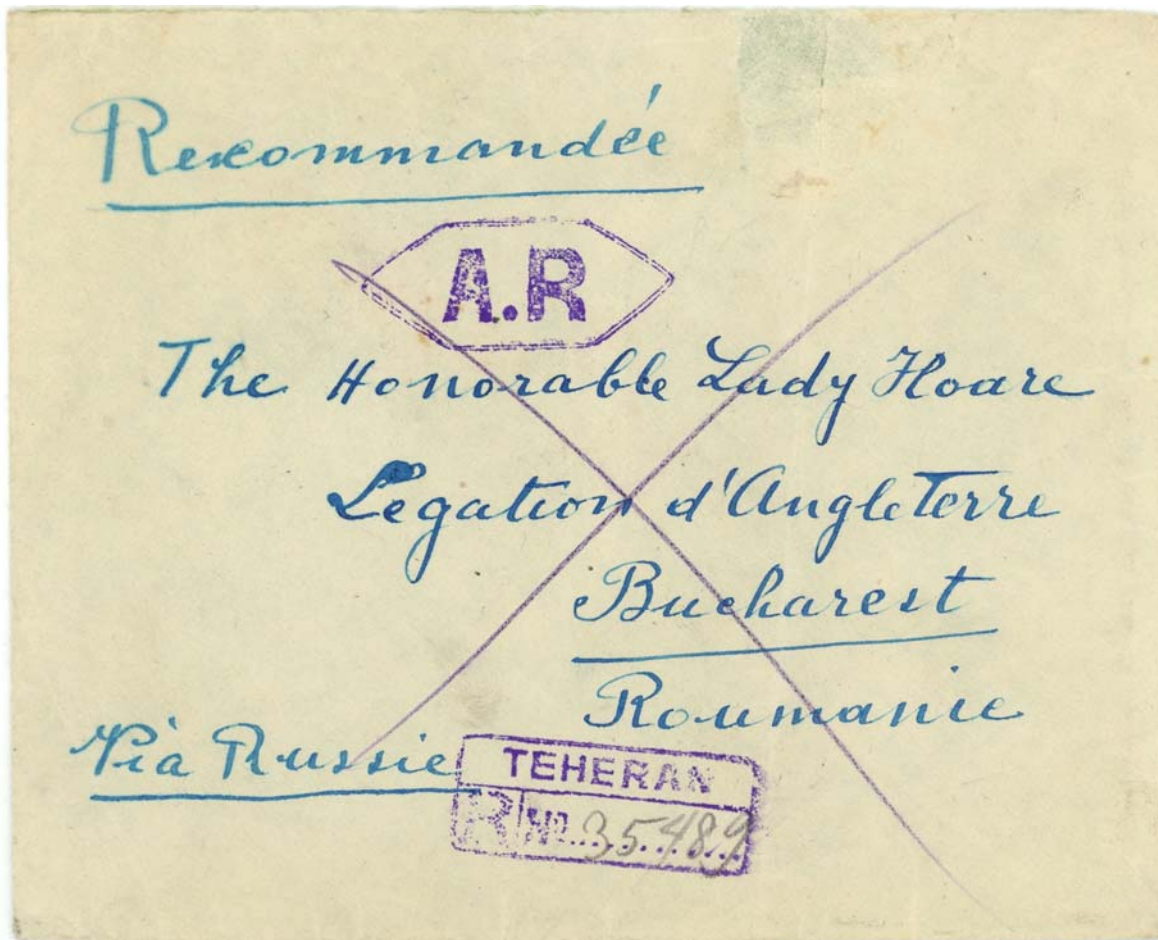 Recommandée
A.R
The Honorable Lady Hoare
Legation d'Angleterre
Bucharest
Roumanie
Via Russie
TEHERAN
R No. 35489